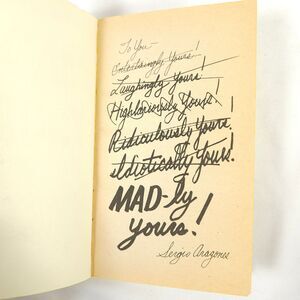 To You—
Entertainingly Yours!
Laughingly Yours!
Highlariously Yours!
Ridiculously Yours.
Idiotically Yours!
MAD-ly
yours!
Sergio Aragones